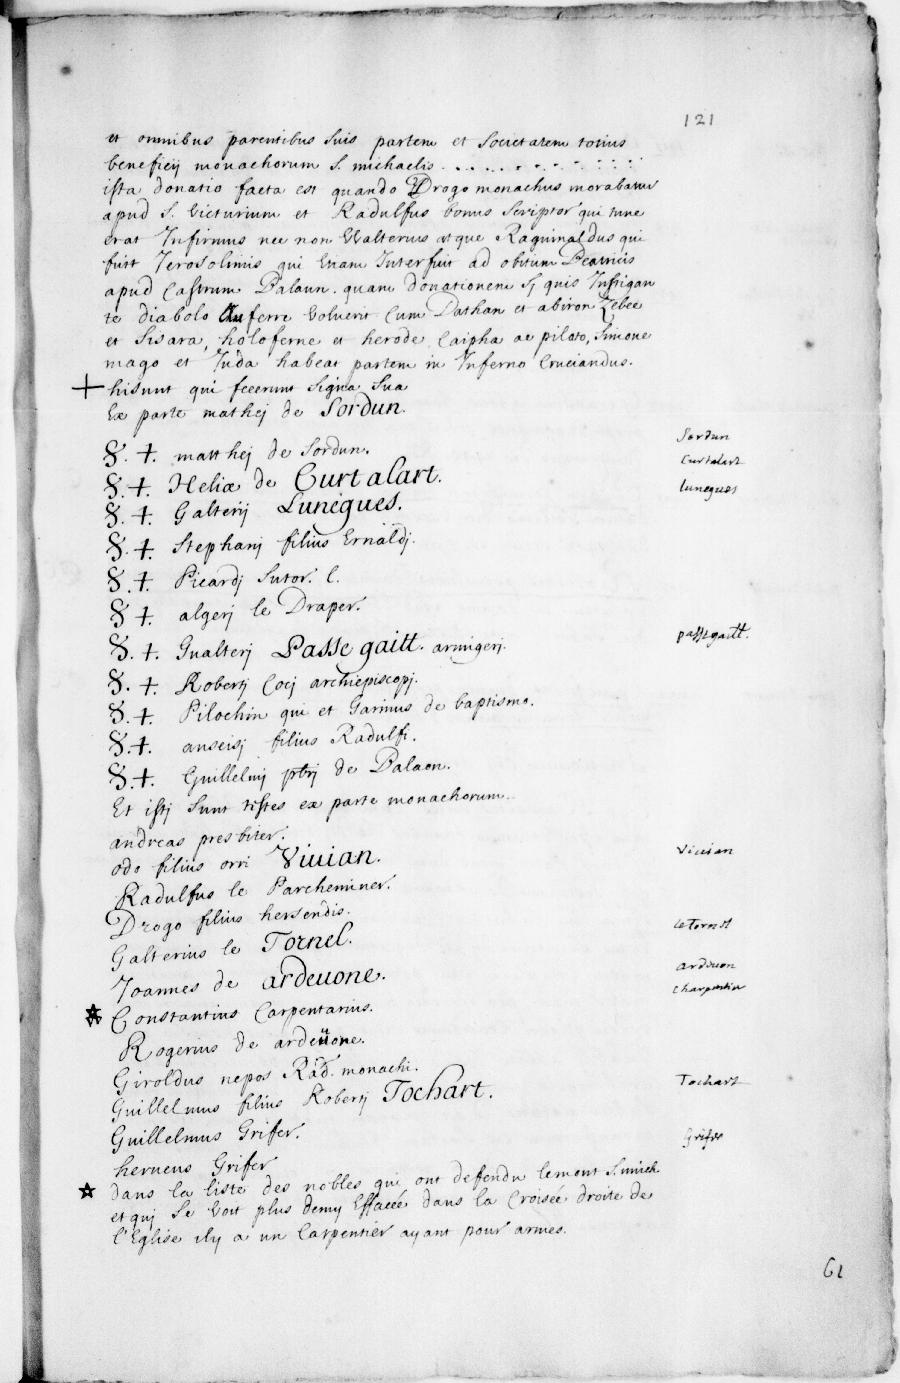 121
et omnibus parentibus suis partem et societatem totius
beneficij monachorum S. michaelis . . . . . . . . . . . .
ista donatio facta est quando Drogo monachus morabatur
apud S. Victurium et Radulfus bonus scriptor qui tunc
erat Infirmus nec non Walterius atque Raguinaldus qui
fuit Jerosolimis qui Etiam Interfuit ad obitum Beatricis
apud Castrum Palaun. quam donationem Sj quis Instigan
te diabolo Auferre Voluerit Cum Dathan et abiron Zebee
et Sisara, holoferne et herode, Caipha ac pilato, Simone
mago et Juda habeat partem in Inferno Cruciandus.
+ hi sunt qui fecerunt Signa Sua
Ex parte mathej de Sordun.
S. +. matthej de Sordun. Sordun
S. +. Heliæ de Curtalart. Curtalart
S. +. Galterij Lunégues. lunegues
S. +. Stephanj filius Ernaldj.
S. +. Picardj Sutor. l.
S +. algerj le Draper.
S. +. Gualterj Passe gaitt. armigerj. passegaitt.
S. +. Robertj Cocj archiepiscopj.
S. +. Pilochin qui et Garinus de baptismo.
S. +. anseisj filius Radulfi.
S. +. Guillelmj ptrj de Palaon.
Et istj Sunt testes ex parte monachorum.
andreas presbiter.
odo filius orri Viuian. Viuian
Radulfus le Parcheminer.
Drogo filius hersendis.
Galterius le Tornel. le Tornel
Joannes de ardeuone. ardeuon
☆ Constantius Carpentarius. Charpentier
Rogerius de ardeüone.
Giroldus nepos Rad. monachi.
Guillelmus filius Robertj Tochart. Tochart
Guillelmus Grifer. Grifer
herueus Grifer
☆ dans la liste des nobles qui ont defendu lemont S. mich
et quj Se Voit plus demy Effacée dans la Croisée droite de
l'Eglise ily a un Carpentier ayant pour armes.
61